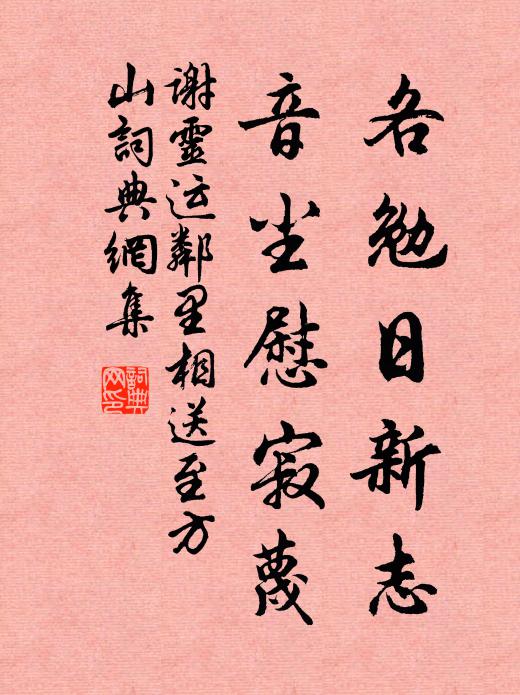 各勉日新志
音尘慰寂蔑
谢靈运鄰里相送至方
山詞典網集
詞典
网印